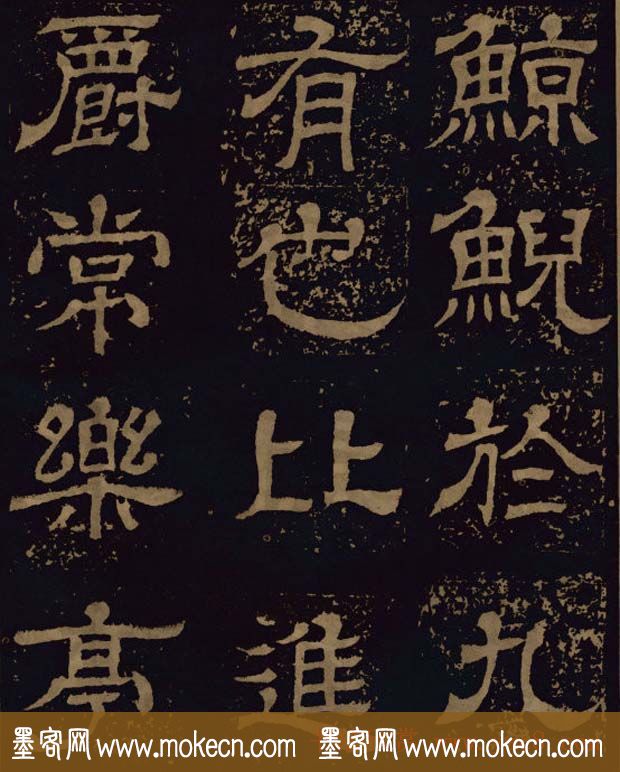 鯨鯢於九
有也比進
爵常樂亭
墨客网 www.mokecn.com 墨客网 www.mokecn.com